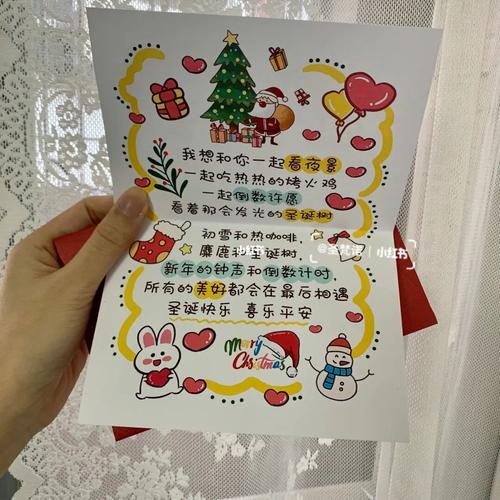 我想和你一起看夜景
一起吃热热的烤火鸡
一起倒数许愿
看着那会发光的圣诞树
初雪和热咖啡,
麋鹿和圣诞树,
新年的钟声和倒数计时
所有的美好都会在最后相遇
圣诞快乐 喜乐平安
Merry
Christmas
小红书
@圣梵诺 | 小红书